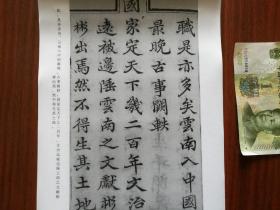 職是亦多矣雲南入中國
最晚古事闊軼
國家定天下幾二百年文治
遠被邊陲雲南之文獻彬
彬出焉然不得生其土地